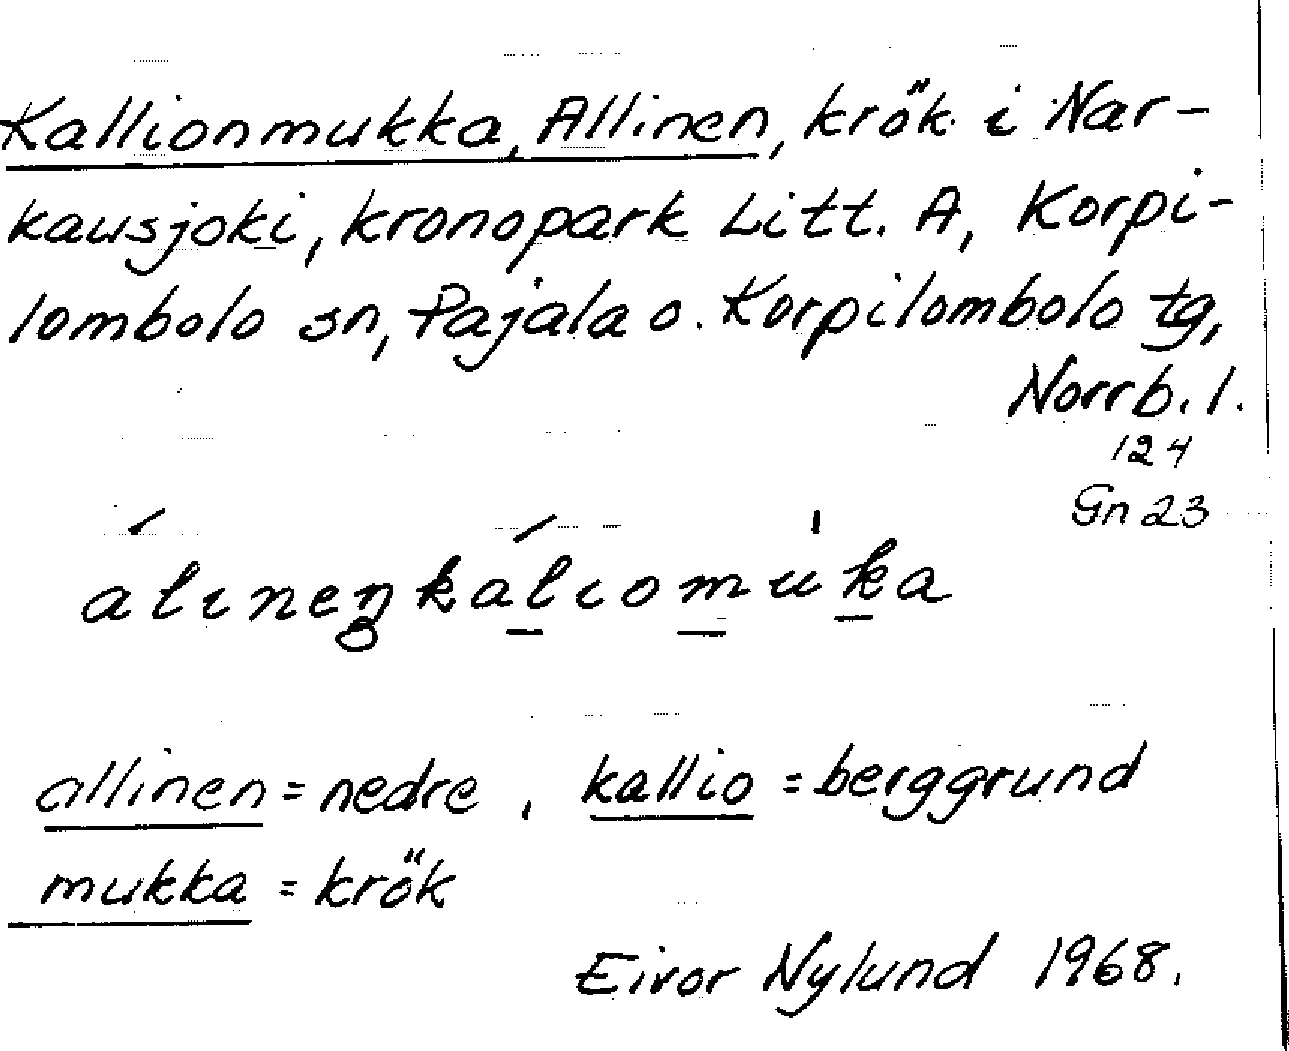 Kallionmukka, Allinen, krök i Nar-
kausjoki, kronopark Litt. A, Korpi-
lombolo sn, Pajala o. Korpilombolo tg,
Norrb. l.
124
Gn 23
alıneŋkalıomuka
allinen = nedre, kallio = berggrund
mukka = krök
Eivor Nylund 1968.